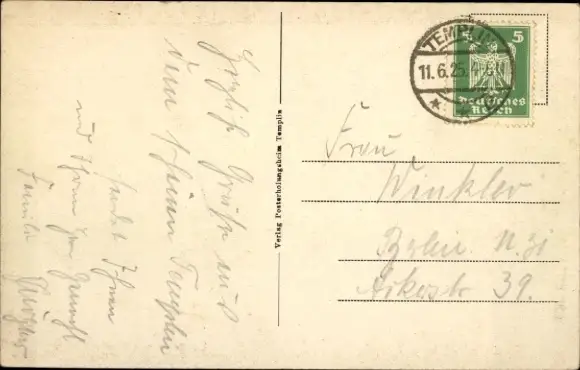 Herzliche Grüße aus
dem schönen Templin
sendet Ihnen
und Ihrem
Familie
Verlag Posterholungsheim Templin
TEMPLIN
11.6.25.
5 5
Deutsches
Reich
Frau
Winkler
Berlin N. 31
39.